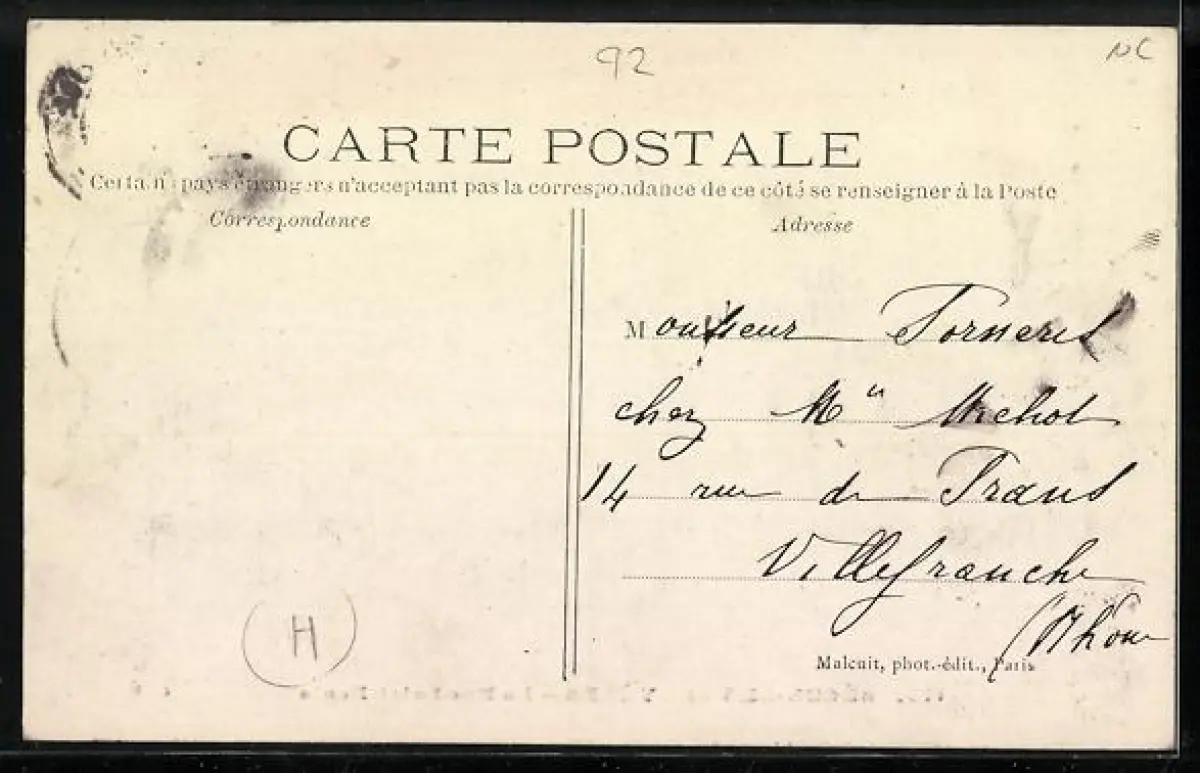 92
NC
CARTE POSTALE
Certains pays étrangers n'acceptant pas la correspondance de ce côté se renseigner à la Poste
Correspondance
Adresse
Monsieur
chez Michot
14 rue de
Villefranche
(Rhône
(H)
Malcuit, phot.-édit., Paris